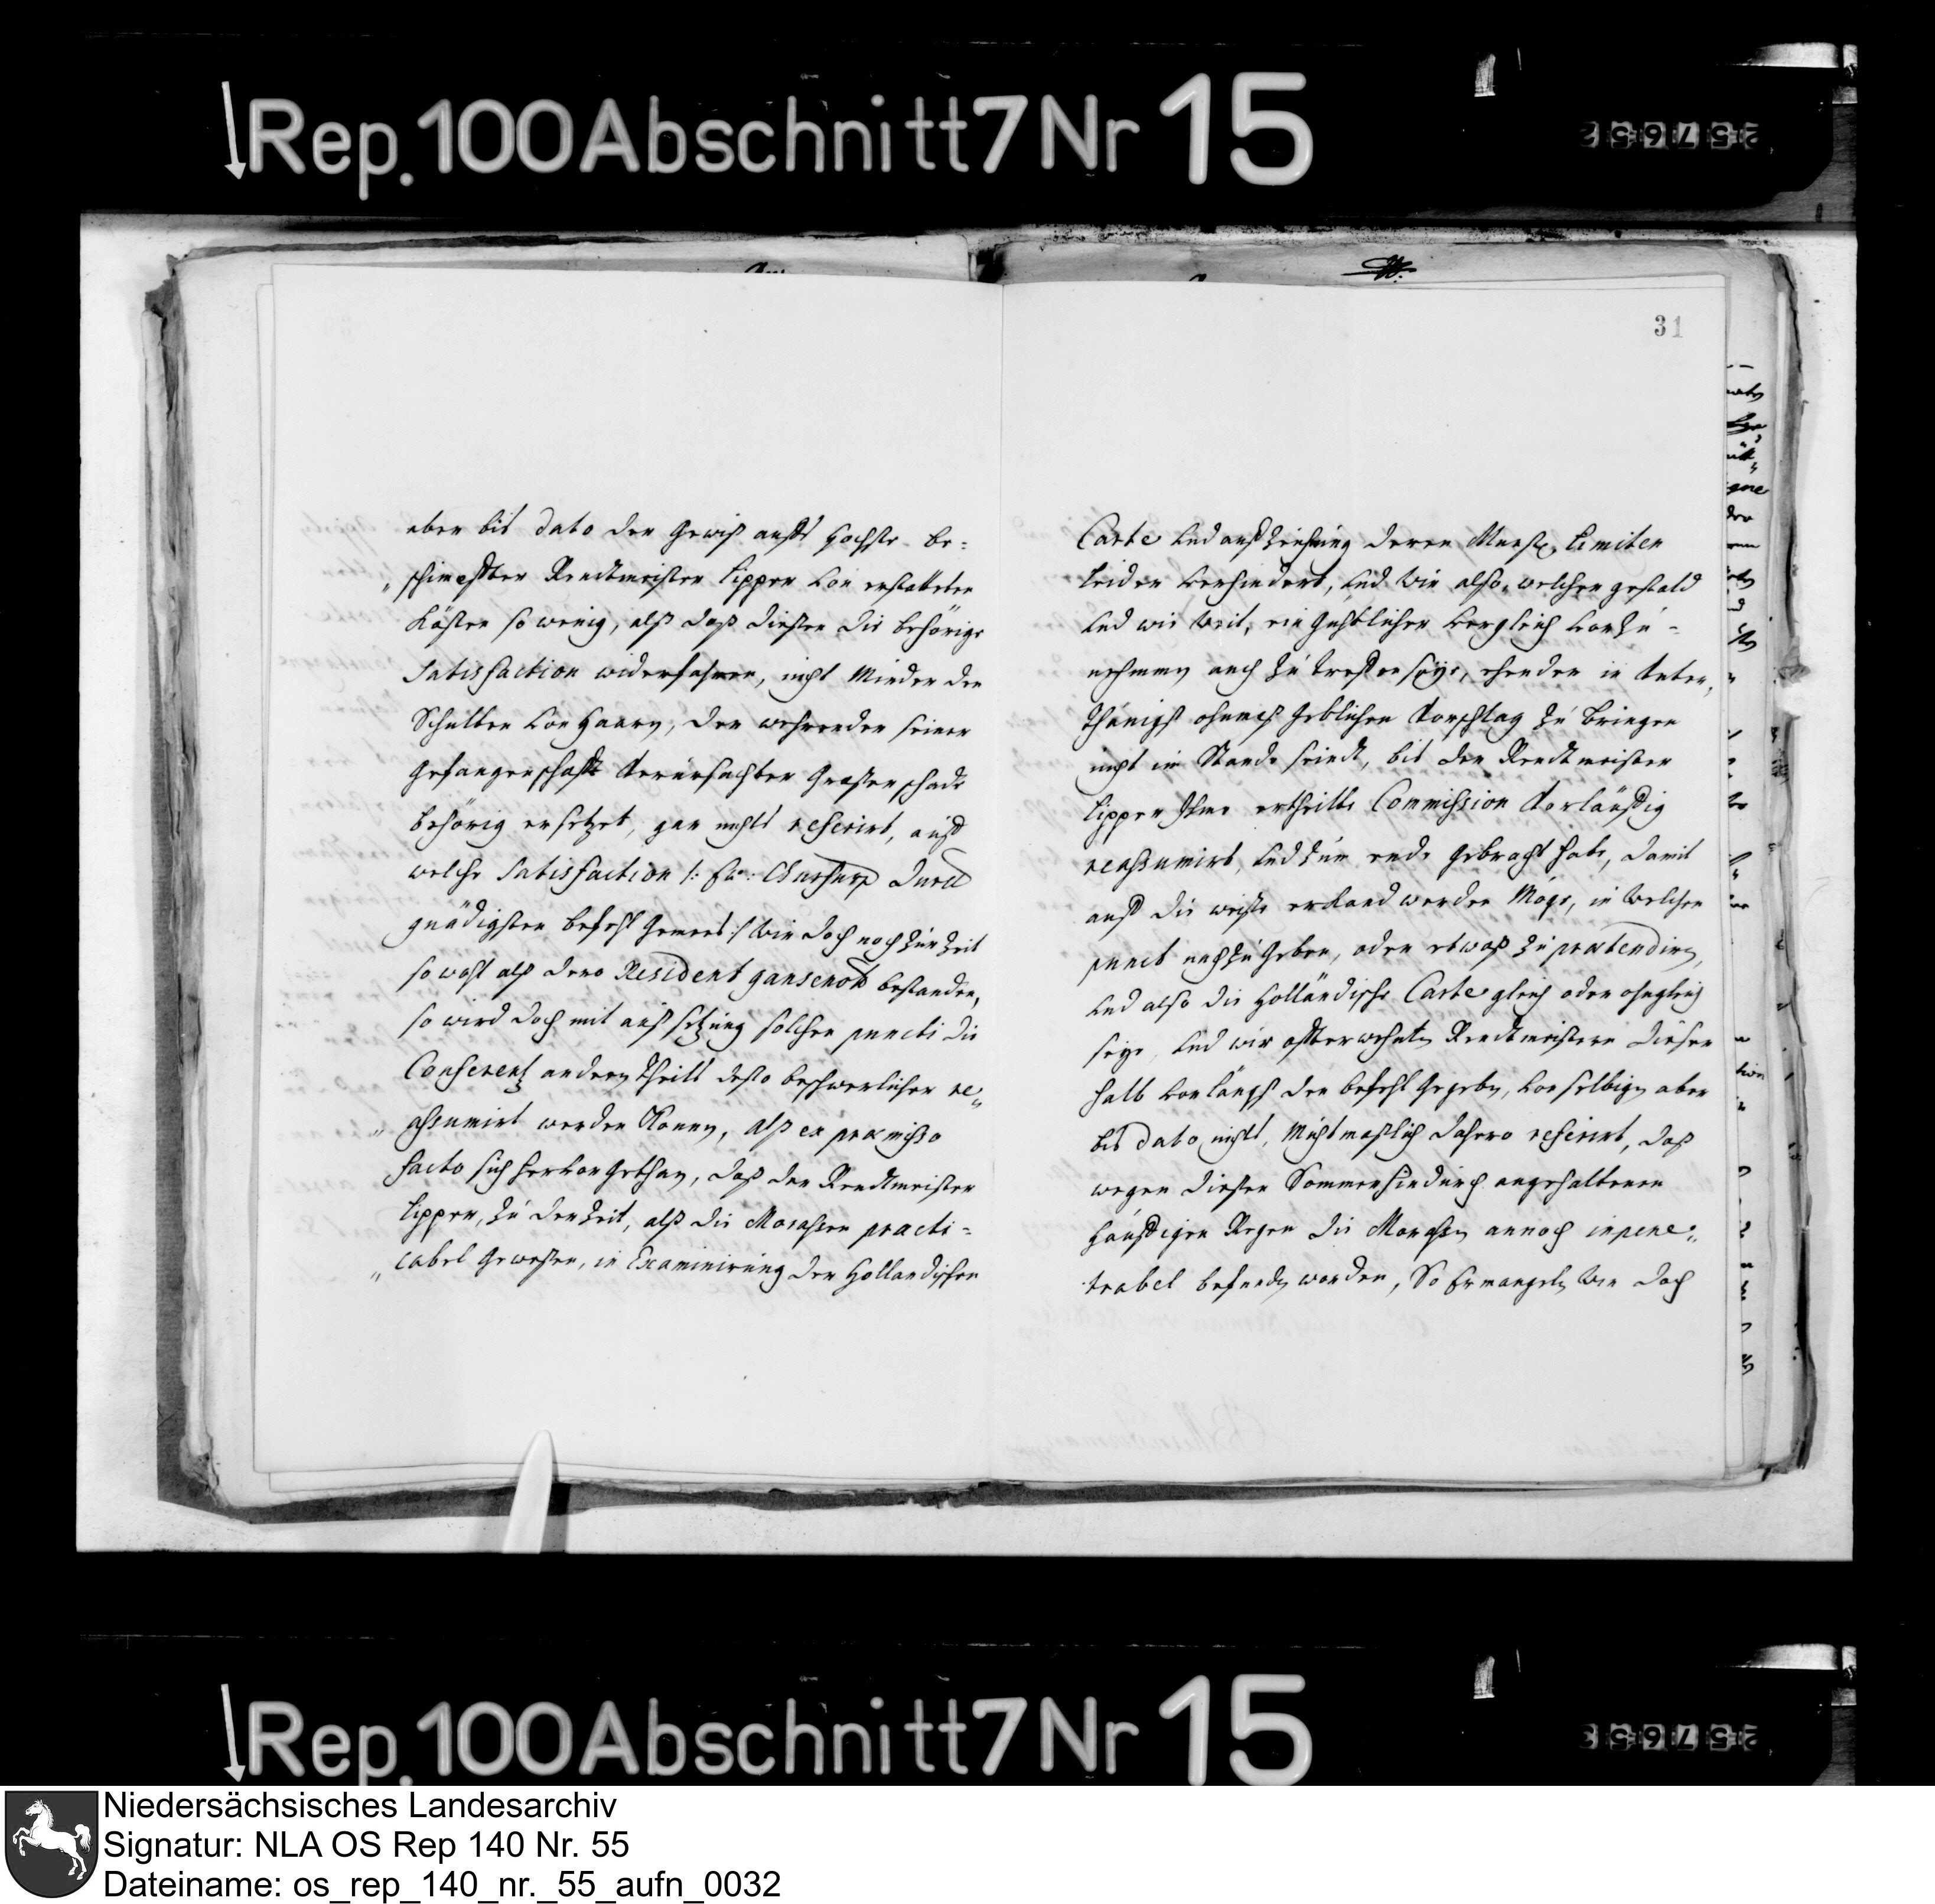 Rep. 100 Abschnitt 7 Nr 15
31
aber bis dato der Gewiß aufs höchste be=
„schimpfter Rendtmeister Lipper von erstatteten
Kösten so wenig, alß daß dießer die behörige
Satisfaction widerfahren, nicht minder der
Schulten von Haaren, der wehrender seiner
Gefangenschafft verürsachter Großer schade
behörig ersetzet, gar nichts referirt, auff
welche Satisfaction /: Ew: Churfürstl Durchl
gnädigsten befehl Gemeeß :/ Wir doch noch zur Zeit
so wohl alß dero Resident gansenott bestanden,
so wird doch mit außsetzung solchen puncti die
Conferentz andern theils desto beschwerlicher re„
„assumirt werden Können, alß ex præmisso
facto sich hervor gethan, daß der Rendtmeister
Lipper, zu der Zeit, alß die Morassen practi=
„cabel Gewesen, in Examinirung der Holländischen
Carte und außziehung deren Limiten
leider verhindert, und Wir also, welcher gestald
und wie weit, ein gühtlicher vergleich vorzu=
nehmen auch zu treffen seye, ehender in Unter„
thänigst ohnmaßgeblichen Vorschlag zu bringen
nicht im Stande seindt, bis der Rendtmeister
Lipper Ihme ertheilte Commission vorläuffig
reassumirt, und zum ende Gebracht habe, damit
auff die weiße erkand werden Möge, in welchen
punct nachzugeben, oder etwaß zu prætendiren,
und also die Holländische Carte gleich oder ohngleich
seye, und wir offterwehnten Rendtmeistern dieser
halb vorlängst den befehl Gegeben, von selbigen aber
bis dato nichts, Muhtmaßlich dahero referirt, daß
wegen dießen Sommer hindurch angehaltenen
häuffigen Regen die Morassen annoch inpene„
trabel befunden worden, So Ermangeln Wir doch
Rep. 100 Abschnitt 7 Nr 15
Niedersächsisches Landesarchiv
Signatur: NLA OS Rep 140 Nr. 55
Dateiname: os_rep_140_nr._55_aufn_0032